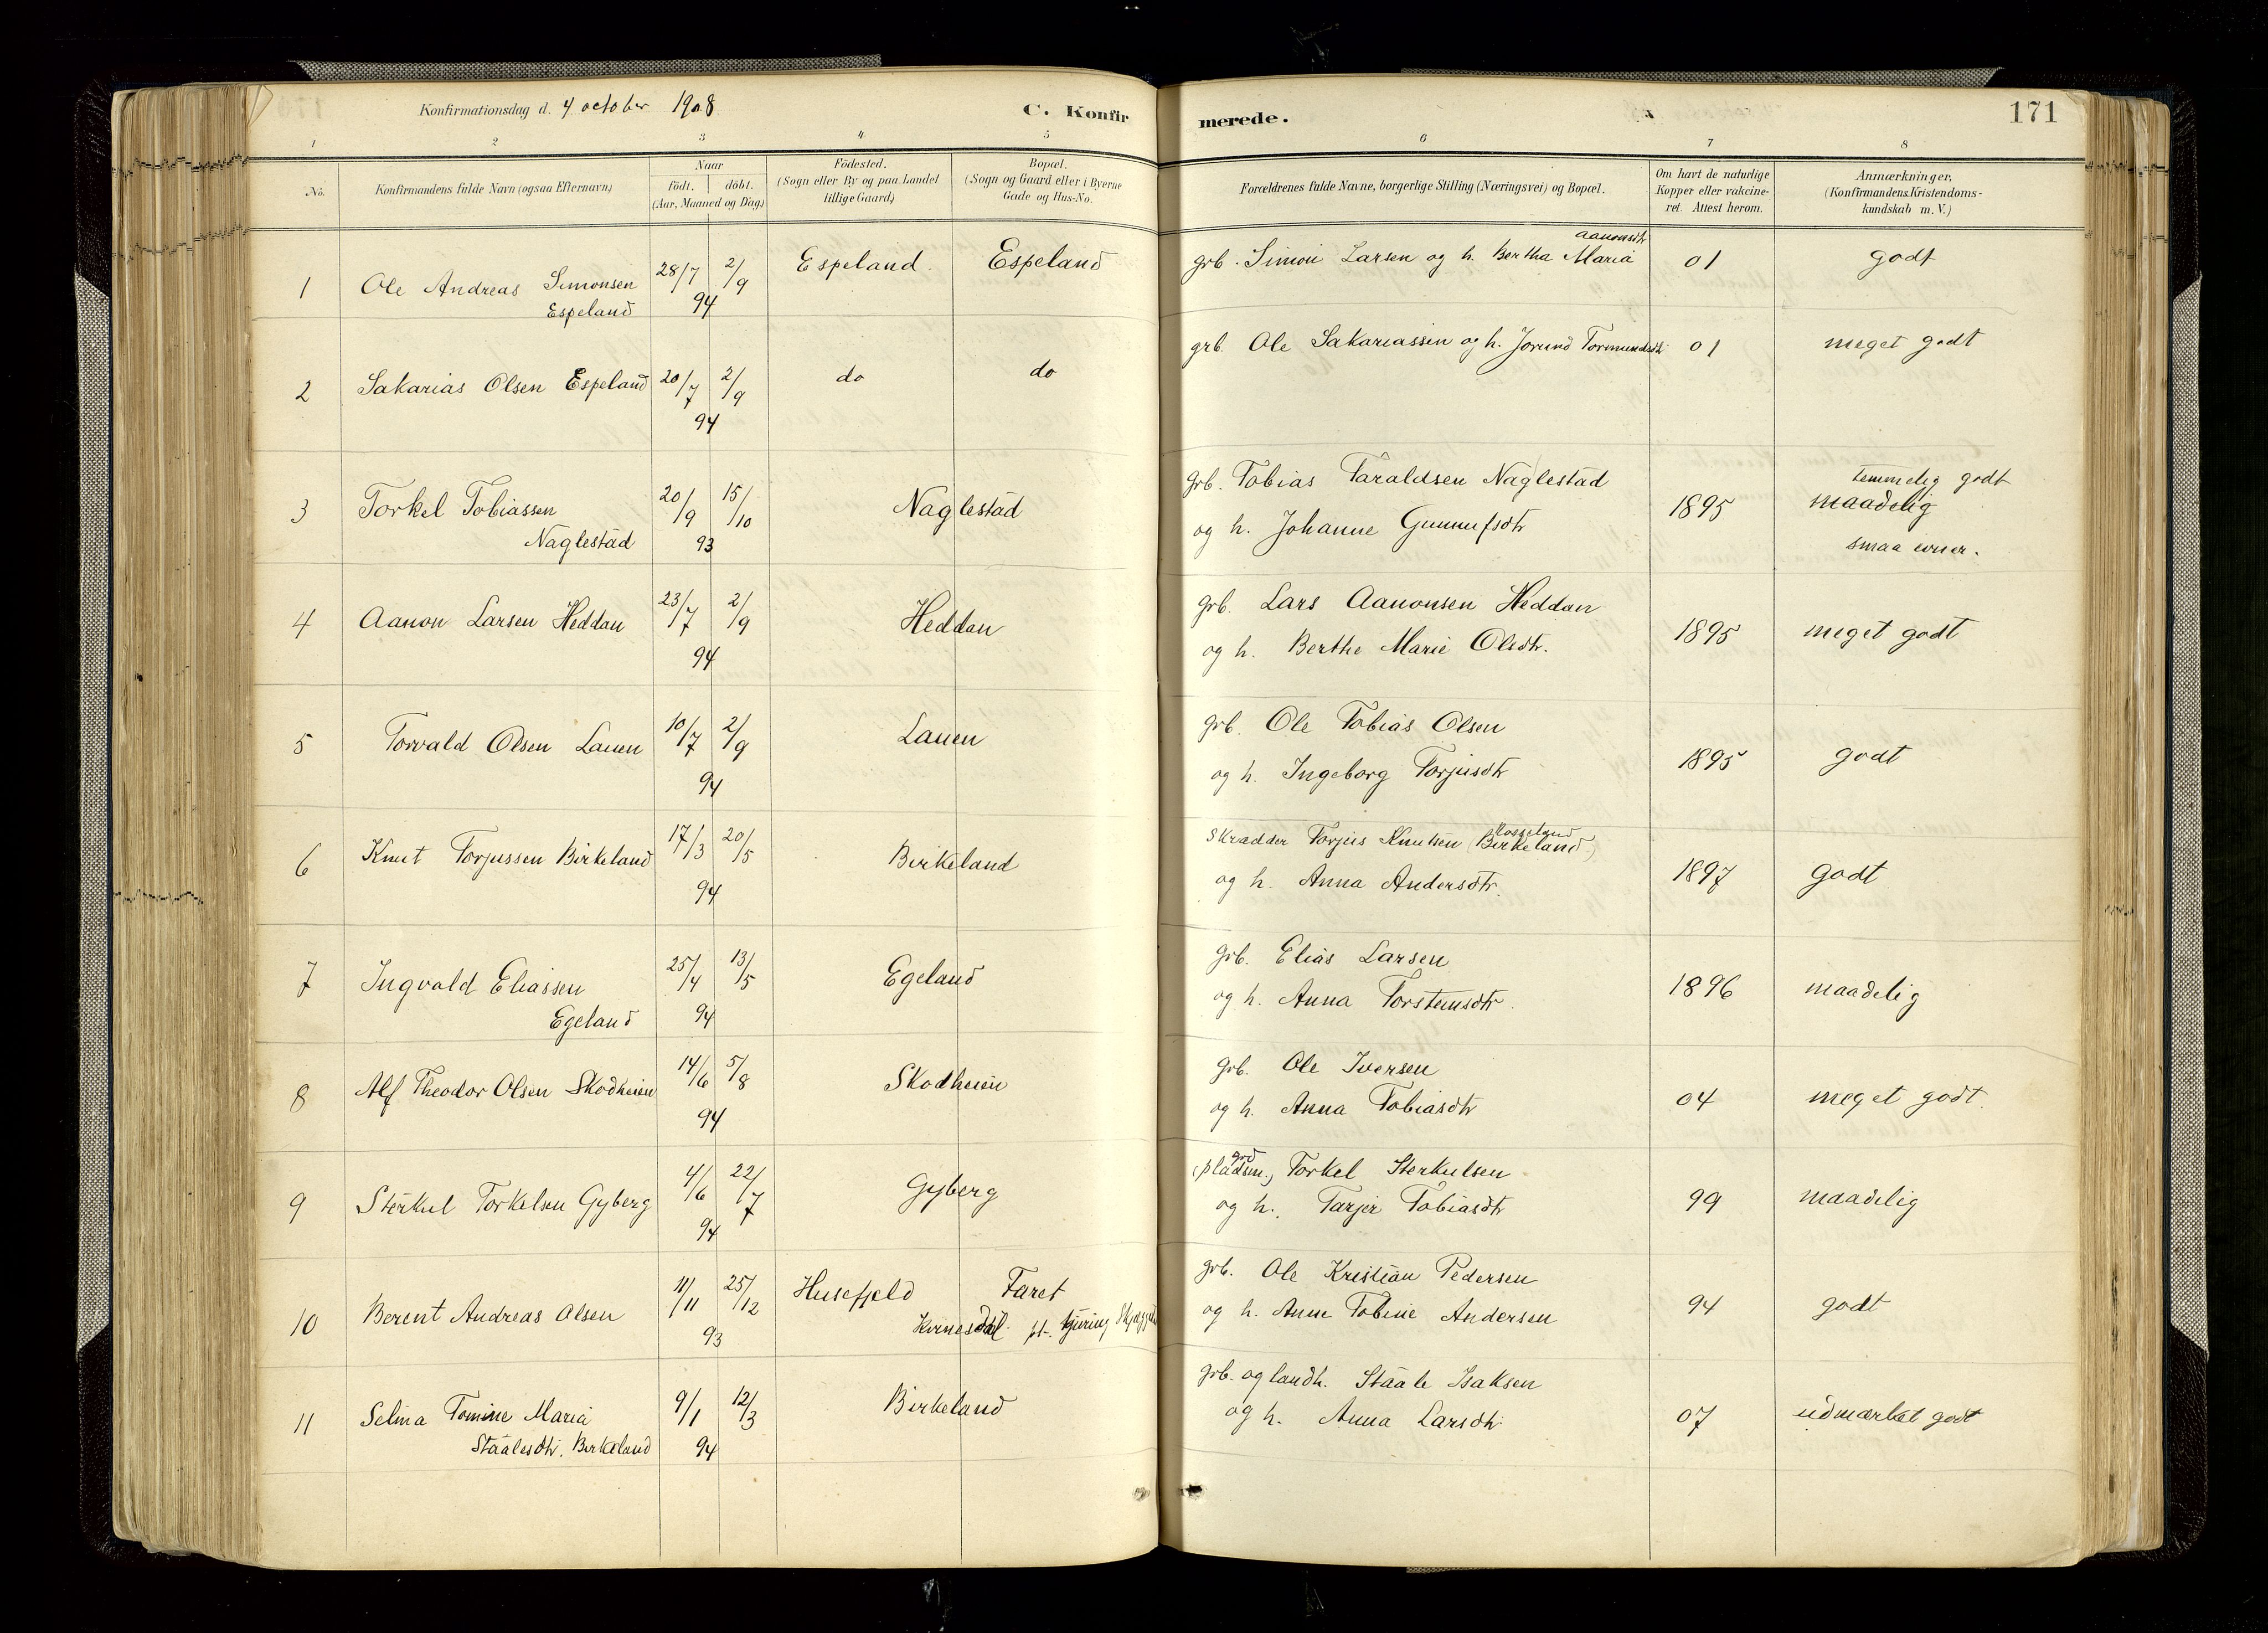 Konfirmationsdag d. 4 october 1908
C. Konfir
merede.
171
1 2 3 4 5 6 7 8
No.
Konfirmandens fulde Navn (ogsaa Efternavn)
Naar
födt. döbt.
(Aar, Maaned og Dag)
Födested.
(Sogn eller By og paa Landet
tillige Gaard)
Bopæl.
(Sogn og Gaard eller i Byerne
Gade og Hus-No.
Forældrenes fulde Navne, borgerlige Stilling (Næringsvei) og Bopæl.
Om havt de naturlige
Kopper eller vakcine-
ret. Attest herom.
Anmærkninger,
(Konfirmandens Kristendoms-
kundskab m. V.)
1 Ole Andreas Simonsen 28/7 2/9 Espeland Espeland grb. Simon Larsen og h. Bertha Maria Aanonsdtr 01 godt
Espeland 94
2 Sakarias Olsen Espeland 20/7 2/9 do do grb. Ole Sakariassen og h. Jorund Tormundsdtr 01 meget godt
94
3 Torkel Tobiassen 20/9 15/10 Naglestad grb. Tobias Taraldsen Naglestad 1895 temmelig godt
maadelig
Naglestad 93 og h. Johanne Gunnufsdtr smaa evner.
4 Aanon Larsen Heddan 23/7 2/9 Heddan grb. Lars Aanonsen Heddan 1895 meget godt
94 og h. Berthe Marie Olsdtr.
5 Torvald Olsen Lauen 10/7 2/9 Lauen grb. Ole Tobias Olsen 1895 godt
94 og h. Ingeborg Torjusdtr
6 Knut Torjussen Birkeland 17/3 20/5 Birkeland Skrædder Torjus Knutsen (Birkeland) 1897 godt
94 og h. Anna Andersdtr.
7 Ingvald Eliassen 25/4 13/5 Egeland grb. Elias Larsen 1896 maadelig
Egeland 94 og h. Anna Torsteinsdtr.
8 Alf Theodor Olsen Skodheien 14/6 5/8 Skodheien grb. Ole Iversen 04 meget godt.
94 og h. Anna Tobiasdtr
9 Sterkul Torkelsen Gyberg 4/6 22/7 Gyberg (pladsm.) Torkel Sterkulsen 99 maadelig
94 og h. Tarjer Tobiasdtr
10 Berent Andreas Olsen 11/11 25/12 Husefjeld Faret grb. Ole Kristian Pedersen 94 godt
93 og h. Anne Tobine Andersen
11 Selma Tomine Maria 9/1 12/3 Birkeland grb. og landh. Staale Isaksen 07 udmærket godt
Staalesdtr. Birkeland 94 og h. Anna Larsdtr